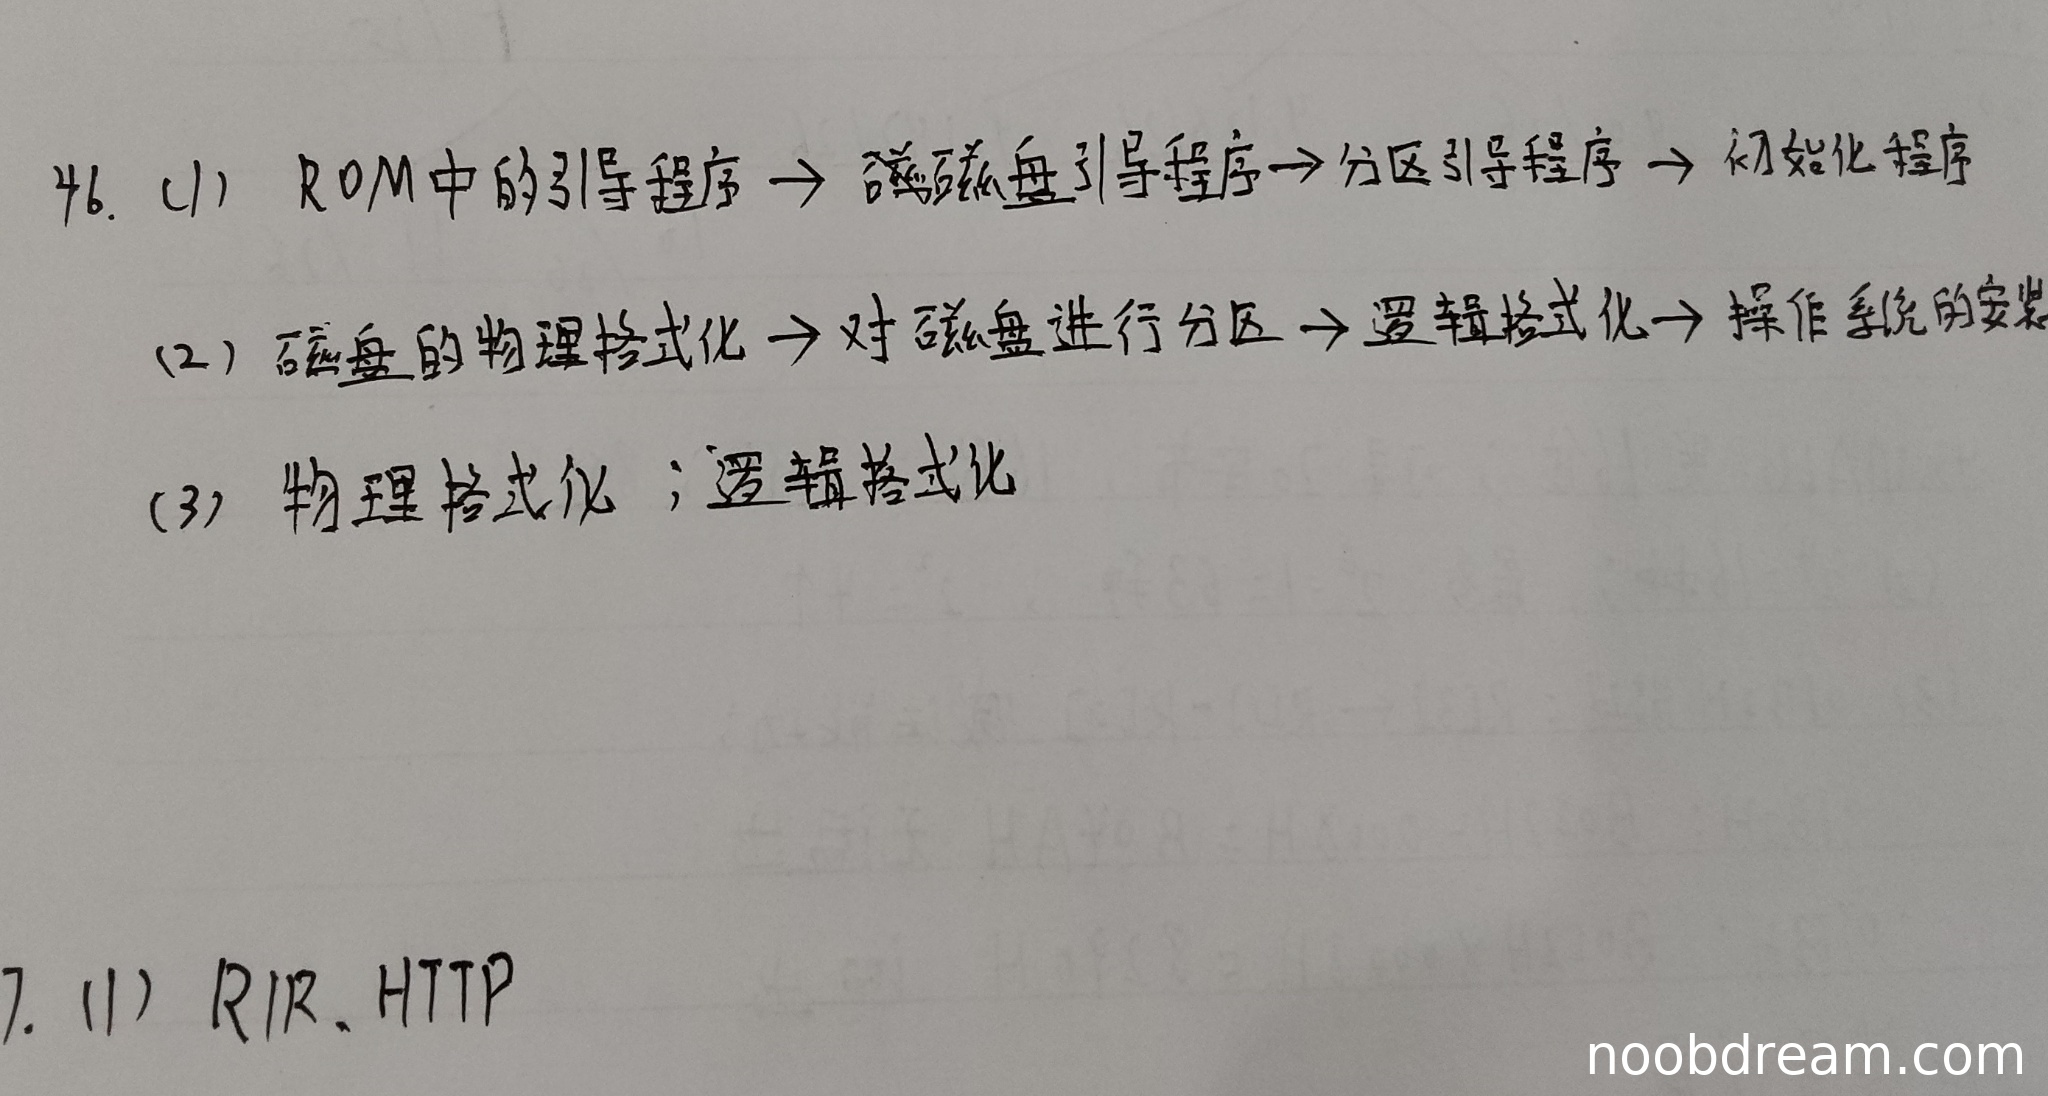 46. (1) ROM中的引导程序 → 磁盘引导程序 → 分区引导程序 → 初始化程序
(2) 磁盘的物理格式化 → 对磁盘进行分区 → 逻辑格式化 → 操作系统的安装
(3) 物理格式化；逻辑格式化
7. (1) RIR、HTTP
noobdream.com